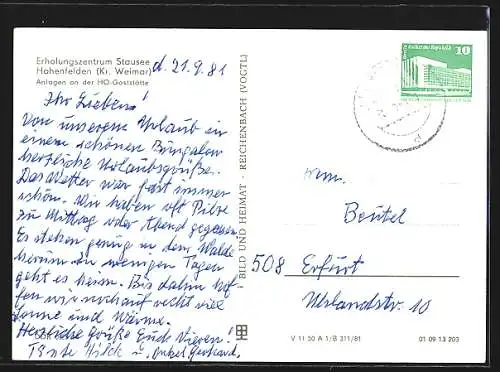 Erholungszentrum Stausee
Hohenfelden (Kr. Weimar)
d. 21.9.81
Anlagen an der HO-Gaststätte
Ihr Lieben!
Von unserem Urlaub in
einem schönen Bungalow
herzliche Urlaubsgrüße.
Das Wetter war fast immer
schön. Wir haben oft Pilze
zu Mittag oder Abend gegessen
Es stehen genug in dem Walde
herum. In wenigen Tagen
geht es heim. Bis dahin hof-
fen wir noch auf recht viel
Sonne und Wärme.
Herzliche Grüße Euch Vieren!
Tante Hilch u. Onkel Gerhard.
BILD UND HEIMAT · REICHENBACH (VOGTL)
10
Fam.
Beutel
508 Erfurt
Uhlandstr. 10
V 11 50 A 1/B 311/81
01 09 13 203